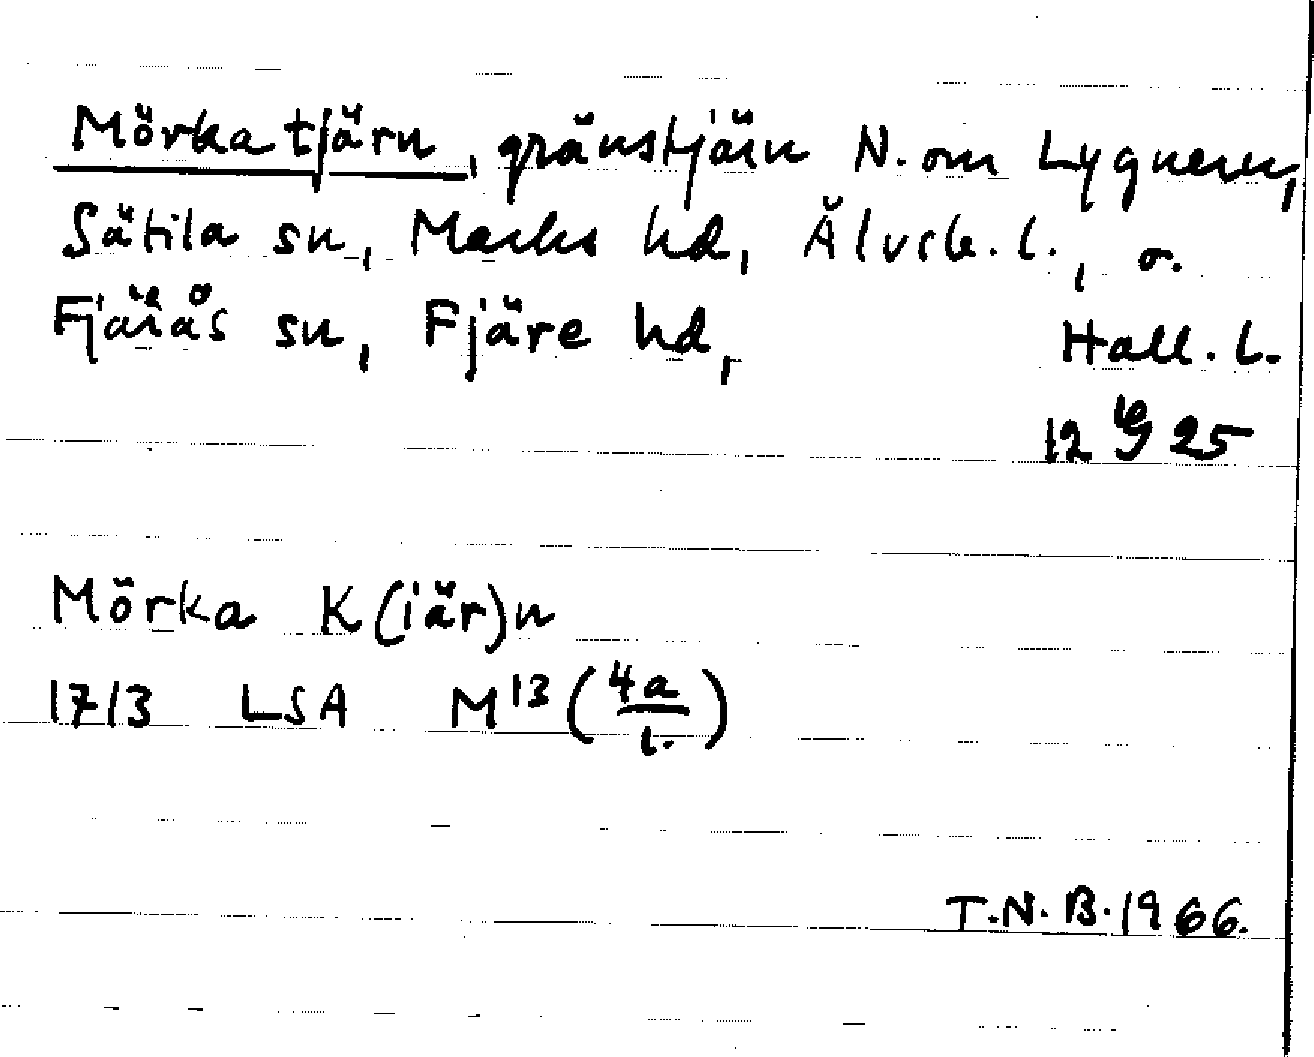 Mörka tjärn, gränstjärn N. om Lygnern,
Sätila sn, Marks hd, Älvsb. l., o.
Fjärås sn, Fjäre hd, Hall. l.
12 25
Mörka K(iär)n
1713 LSA M13 (4a/1.)
T.N.B. 1966.